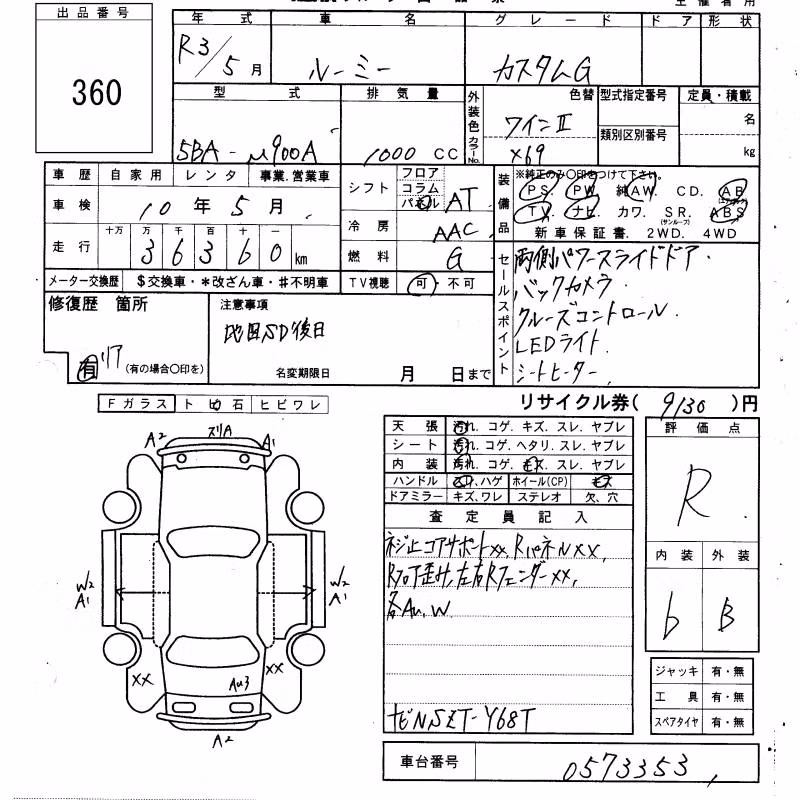 出品番号
360
年式 車名 グレード ドア 形状
R3/5月 ルーミー カスタムG
型式 排気量 外装色 色替 型式指定番号 定員・積載
5BA-M900A 1000 CC ワインⅡ 類別区別番号 名
カラーNo. X69 kg
車歴 自家用 レンタ 事業.営業車
車検 10年5月
走行 十万 万 千 百 十 一
3 6 3 6 0 km
シフト フロア コラム パネル AT
冷房 AAC
燃料 G
装備品 ※純正のみ○印をつけて下さい。
PS. PW. 純AW. CD. AB(エアバック)
TV. ナビ. カワ. SR.(サンルーフ) ABS
新車保証書. 2WD. 4WD
メーター交換歴 $交換車・*改ざん車・#不明車 TV視聴 可・不可
セールスポイント
両側パワースライドドア.
バックカメラ.
クルーズコントロール.
LEDライト.
シートヒーター.
修復歴 箇所 注意事項
地図SD後日
有 リア (有の場合○印を) 名変期限日 月 日まで
Fガラス トビ石 ヒビワレ
リサイクル券( 9130 )円
天張 汚れ. コゲ. キズ. スレ. ヤブレ
シート 汚れ. コゲ. ヘタリ. スレ. ヤブレ
内装 汚れ. コゲ. キズ. スレ. ヤブレ
ハンドル スリ、ハゲ ホイール(CP) キズ
ドアミラー キズ、ワレ ステレオ 欠、穴
評価点
R
内装 外装
6 B
査定員記入
ネジ止コアサポートXX, RパネルXX,
Rフロア歪み, 左右RフェンダーXX,
各AU, W
ナビNSZT-Y68T
A2 スリA A1
W2 A1
W2 A1
XX AU3 XX
A2
ジャッキ 有・無
工具 有・無
スペアタイヤ 有・無
車台番号 0573353